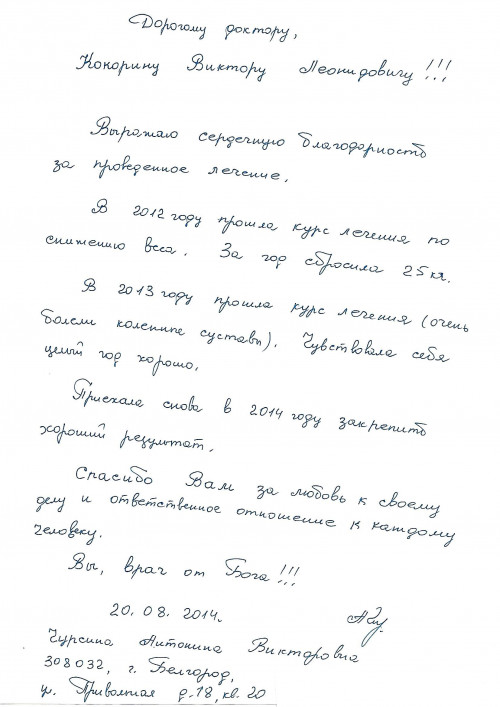 Дорогому доктору,
Кокорину Виктору Леонидовичу!!!
Выражаю сердечную благодарность
за проведенное лечение.
В 2012 году прошла курс лечения по
снижению веса. За год сбросила 25 кг.
В 2013 году прошла курс лечения (очень
болели коленные суставы). Чувствовала себя
целый год хорошо.
Приехала снова в 2014 году закрепить
хороший результат.
Спасибо Вам за любовь к своему
делу и ответственное отношение к каждому
человеку.
Вы, врач от Бога!!!
20.08.2014.
Чурсина Антонина Викторовна
308032, г. Белгород,
ул. Привольная д.18, кв. 20